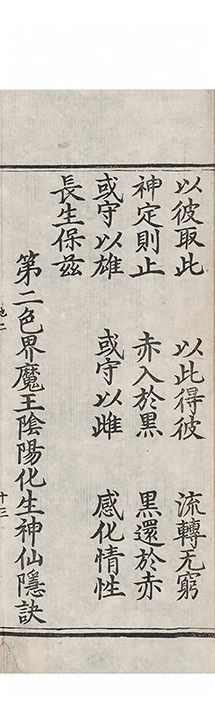 以彼取此　以此得彼　流轉无窮
神定則止　赤入於黑　黑還於赤
或守以雄　或守以雌　感化情性
長生保兹
第二色界魔王陰陽化生神仙隱訣
十三